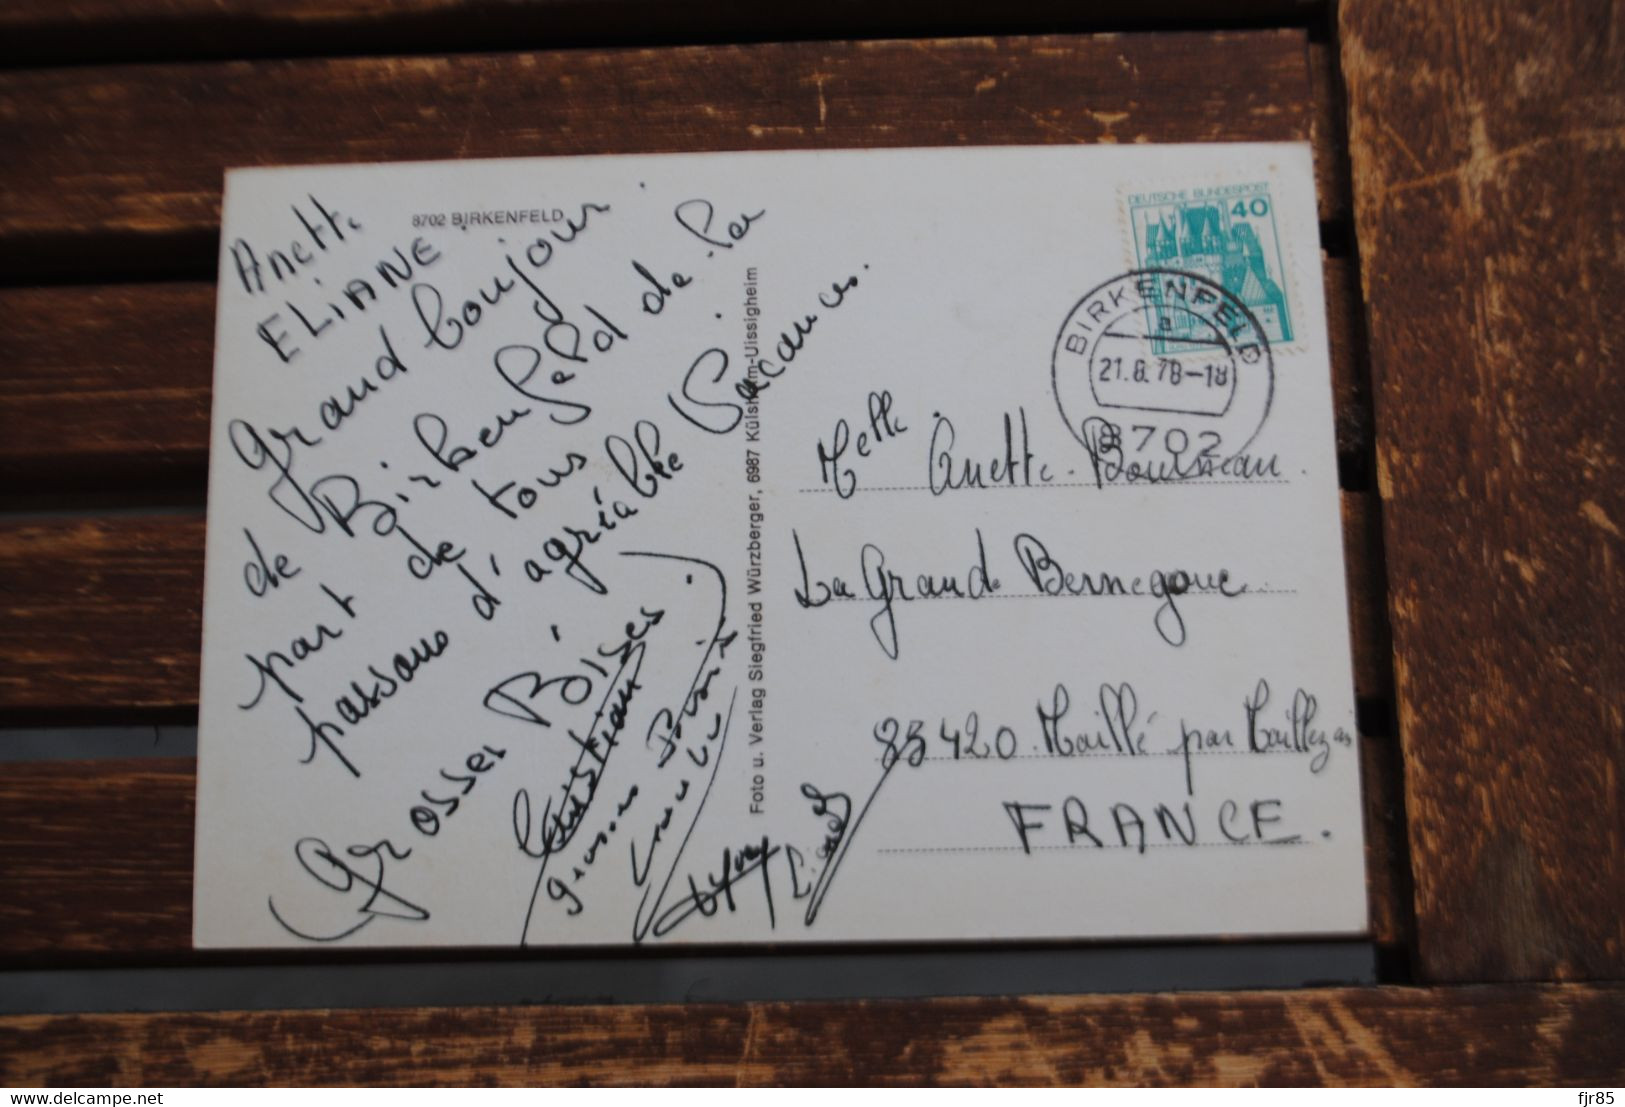 8702 BIRKENFELD
Anette
ELIANE
grand bonjour
de Birkenfeld de la
part de tous
passons d'agréable Vacances.
Grosses Bises
Christian
Yvon
Lionel
Foto u. Verlag Siegfried Würzberger, 6987 Külsheim-Uissigheim
DEUTSCHE BUNDESPOST
40
BIRKENFELD
a
21.8.78-18
8702
Melle Anette
La Grande Bernegoue
85420 Maillé par Maillezais
FRANCE.
fjr85